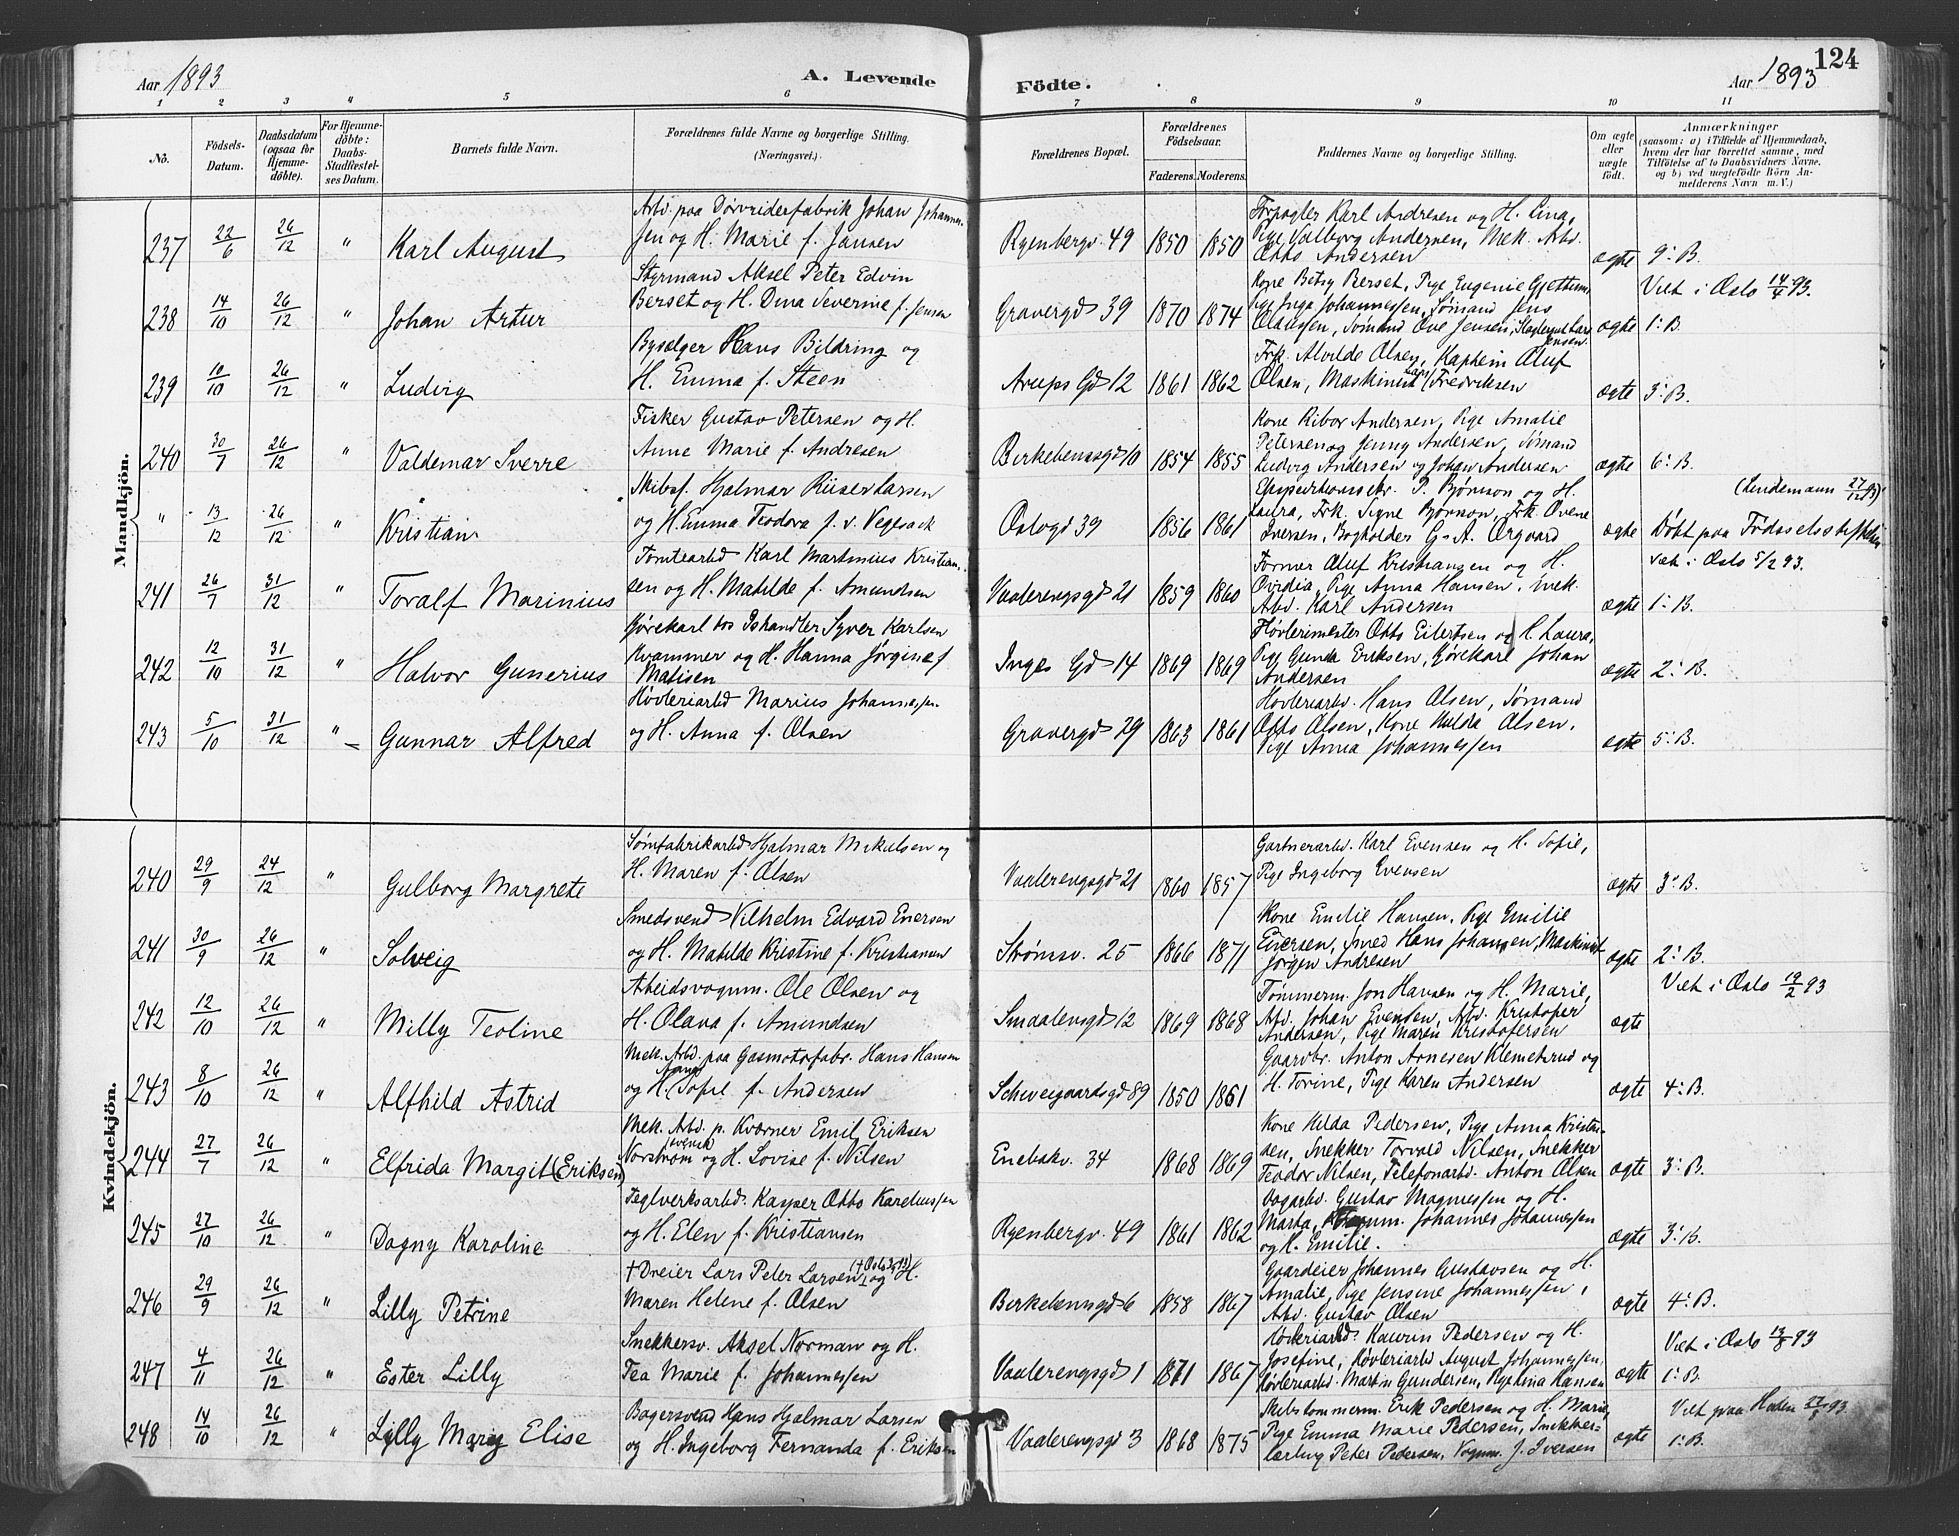 124
Aar 1893 A. Levende Födte. Aar 1893
1 2 3 " 5 6 7 8 9 10 11
No.
Födsels-
Datum.
Daabsdatum
(ogsaa for
Hjemme-
döbte).
For Hjemme-
döbte:
Daabs-
Stadfæstel-
ses Datum.
Barnets fulde Navn.
Forældrenes fulde Navne og borgerlige Stilling.
(Næringsvei.)
Forældrenes Bopæl.
Forældrenes
Födselsaar.
Faderens. Moderens.
Faddernes Navne og borgerlige Stilling.
Om ægte
eller
uægte
födt.
Anmærkninger
(saasom: a) i Tilfælde af Hjemmedaab,
hvem der har forrettet samme, med
Tilföielse af to Daabsvidners Navne,
og b) ved uegtefödte Börn An-
melderens Navn m. V.)
Mandkjön.
237 22/6 26/12 " Karl August
Arb. paa Johan Johannes-
sen og H. Marie f. Jansen
Ryenbergv. 49 1850 1850
Forpagter Karl Andresen og H. Lina,
Pige Valborg Andersen, Mek. Arb.
Otto Andersen
ægte 9: B.
238 14/10 26/12 " Johan Artur
Styrmand Aksel Peter Edvin
Berset og H. Dina Severine f. Jensen
Gravergd 39 1870 1874
Kone Betsy Berset, Pige Eugenie Gjettum,
Pige Inga Johannessen, Sømand Jens
Olaussen, Sømand Ove Jensen, Lars
Jensen.
ægte Viet i Oslo 93.
1: B.
239 10/10 26/12 " Ludvig
Bysælger Hans Bildring og
H. Emma f. Steen
Arups Gd 12 1861 1862
Frk. Alvilde Olsen, Kaptein Oluf
Olsen, Maskinist Fredriksen
ægte 3: B.
240 30/7 26/12 " Valdemar Sverre
Fisker Gustav Petersen og H.
Anne Marie f. Andresen
Birkebensgd 10 1854 1855
Kone Andersen, Pige Amalie
Petersen og Jenny Andersen, Sømand
Ludvig Andersen og Johan Andersen
ægte 6: B.
" 13/12 26/12 " Kristian
Skibsf. Hjalmar Riiser Larsen
og H. Emma Teodora f. v. Vegesack
Oslogd 39 1856 1861
P. Bjørnson og H.
Laura, Frk. Signe Bjørnson, Frk.
Iversen, Bogholder G. A.
ægte (Lindemann 27/12 93)
Døbt paa Fødselsstiftelsen
241 26/7 31/12 " Toralf Marinius
Tomtearbd Karl Martinius Kristian-
sen og H. Matilde f. Amundsen
Vaalerengsgd 21 1859 1860
Former Oluf Kristiansen og H.
Ovidia, Pige Anna Hansen, mek.
Arb. Karl Andersen
ægte viet i Oslo 5/2 93.
1: B.
242 12/10 31/12 " Halvor Gunerius
Kjørekarl hos Ishandler Syver Karlsen
Kvammer og H. Hanna Jørgine f.
Matisen
Inges Gd 14 1869 1869
Høvlerimester Otto Eilertsen og H. Laura,
Pige Gunda Eriksen, Kjørekarl Johan
Andersen
ægte 2: B.
243 5/10 31/12 " Gunnar Alfred
Høvleriarbd Marius Johannessen
og H. Anna f. Olsen
Gravergd 29 1863 1861
Høvleriarb. Hans Olsen, Sømand
Otto Olsen, Kone Hulda Olsen,
Pige Anna Johannessen
ægte 5: B.
Kvindekjön.
240 29/9 24/12 " Gulborg Margrete
Sømfabrikarbd Hjalmar Mikelsen og
H. Maren f. Olsen
Vaalerengsgd 21 1860 1857
Gartnerarb. Karl Evensen og H. Sofie,
Pige Ingeborg Evensen
ægte 3: B.
241 30/9 26/12 " Solveig
Smedsvend Vilhelm Edvard Enersen
og H. Matilde Kristine f. Kristiansen
Strømsv. 25 1866 1871
Kone Emilie Hansen, Pige Emilie
Eversen, Smed Hans Johansen, Maskinist
Jørgen Andresen
ægte 2: B.
242 12/10 26/12 " Milly Teoline
Arbeidsvognm. Ole Olsen og
H. Olava f. Amundsen
Smaalensgd 12 1869 1868
Tømmerm. Jon Hansen og H. Marie,
Arb. Johan Evensen, Arb. Kristofer
Andersen, Pige Maren Kristofersen
ægte Viet i Oslo 19/2 93
243 8/10 26/12 " Alfhild Astrid
Mek. Arbd paa Gasmotorfabr. Hans Hansen
og H. Sofie f. Andersen
Schweigaardsgd 89 1850 1861
Gaardbr. Anton Arnesen Klemetsrud og
H. Torine, Pige Karen Andersen
ægte 4: B.
244 27/7 26/12 " Elfrida Margit (Eriksen)
Mek. Arbd. p. Kværner Emil Eriksen
Norstrøm og H. Lovise f. Nilsen
Enebakv. 34 1868 1869
Kone Hilda Pedersen, Pige Anna Kristian-
sen, Snekker Torvald Nilsen, Snekker
Teodor Nilsen, Telefonarbd. Anton Olsen
ægte 3: B.
245 27/10 26/12 " Dagny Karoline
Teglverksarbd. Kasper Otto Kareliussen
og H. Elen f. Kristiansen
Ryenbergv. 49 1861 1862
Dagarb. Gustav Magnussen og H.
Marta, Johannes Johannessen
og H. Emilie.
ægte 3: B.
246 29/9 26/12 " Lilly Petrine
† Dreier Lars Peter Larsen og H.
Maren Helene f. Olsen
Birkebensgd 6 1858 1867
Gaardeier Johannes Gustavsen og H.
Amalie, Pige Jensine Johannessen,
Arb. Gustav Olsen
ægte 4: B.
247 4/11 26/12 " Ester Lilly
Snekkersv. Aksel Norman og H.
Tea Marie f. Johannessen
Vaalerengsgd 1 1871 1867
Høvleriarbd. Pedersen og H.
Josefine, Høvleriarbd August Johannessen,
Høvleriarbd. Martin Gundersen, Pige Lina Hansen
ægte Viet i Oslo 93
1: B.
248 14/10 26/12 " Lilly Marie Elise
Bagersvend Hans Hjalmar Larsen
og H. Ingeborg Fernanda f. Eriksen
Vaalerengsgd 3 1868 1875
Skibstømmerm. Erik Pedersen og H. Marie,
Pige Emma Marie Pedersen, Snekker-
lærling Peter Pedersen, Vognm. J. Iversen
ægte Viet paa 93
1: B.